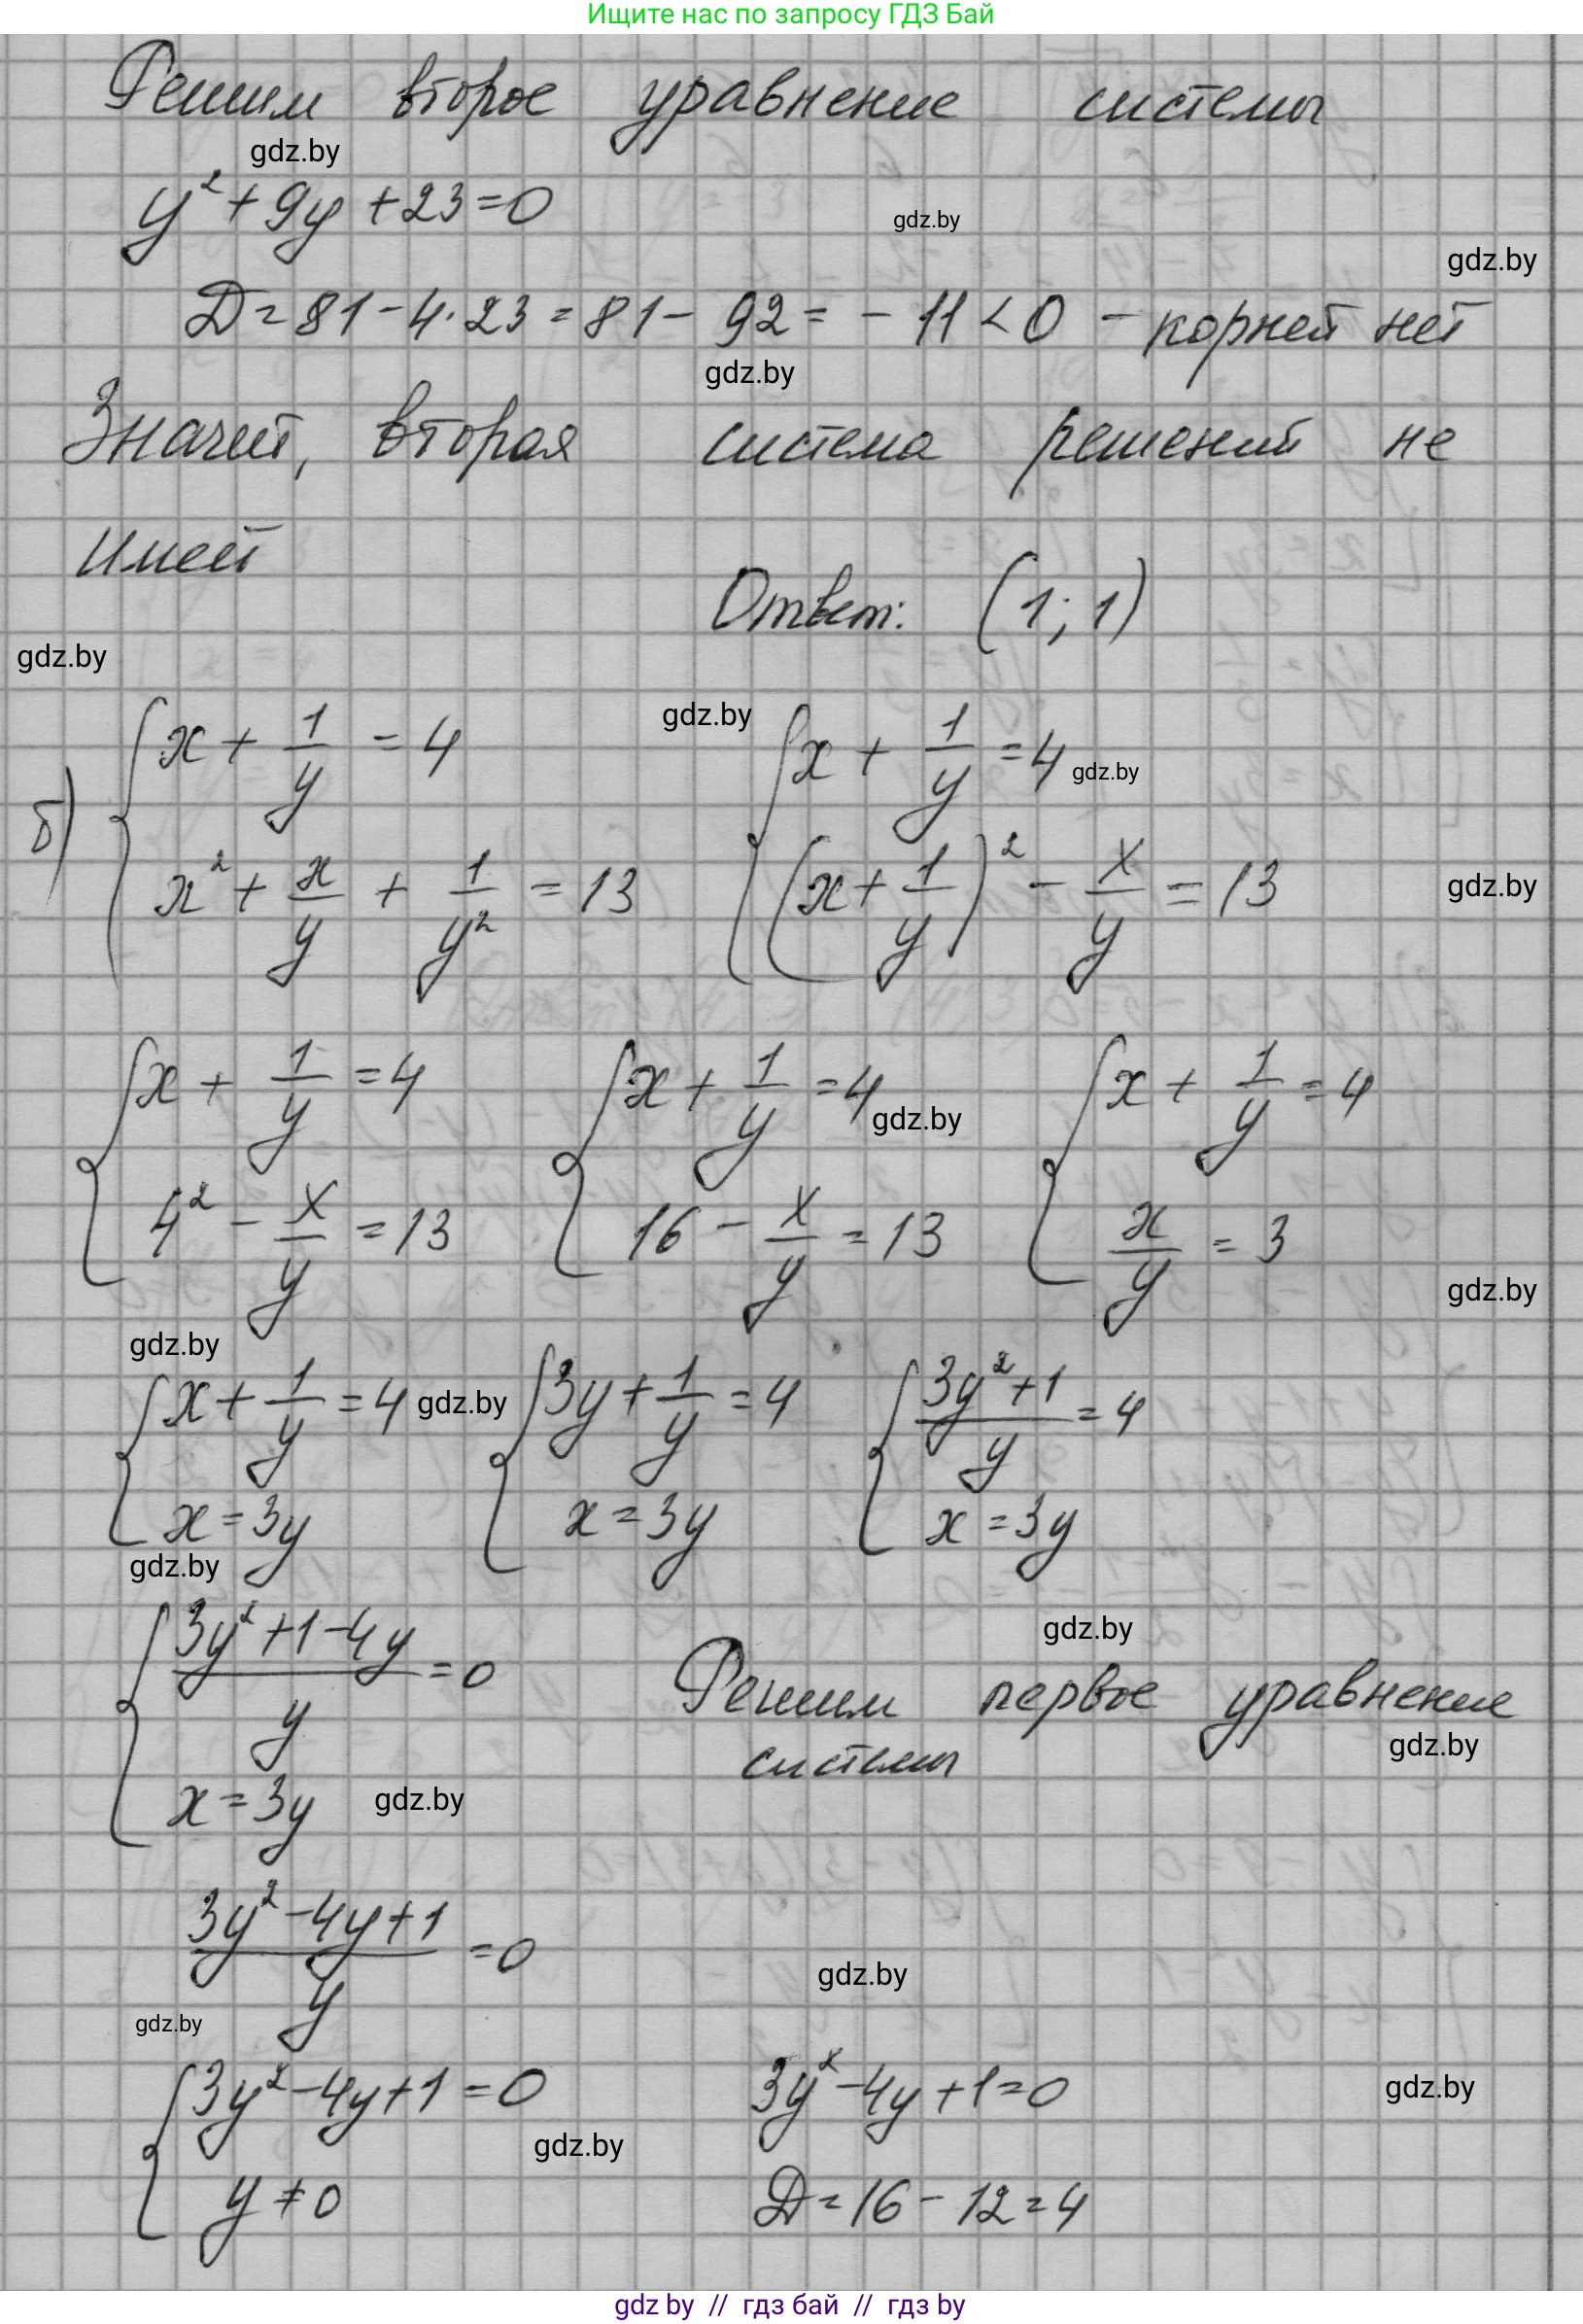 Ищите нас по запросу ГДЗ Бай
Решим второе уравнение системы
gdz.by
y² + 9y + 23 = 0
gdz.by
gdz.by
D = 81 - 4·23 = 81 - 92 = - 11 < 0 - корней нет
gdz.by
Значит, вторая система решений не
имеет
Ответ: (1; 1)
gdz.by
gdz.by
б) { x + 1/y = 4 { x + 1/y = 4
gdz.by
x² + x/y + 1/y² = 13 (x + 1/y)² - x/y = 13
gdz.by
{ x + 1/y = 4 { x + 1/y = 4 { x + 1/y = 4
gdz.by
4² - x/y = 13 16 - x/y = 13 x/y = 3
gdz.by
gdz.by
{ x + 1/y = 4 gdz.by { 3y + 1/y = 4 { (3y² + 1)/y = 4
x = 3y x = 3y x = 3y
gdz.by
{ (3y² + 1 - 4y)/y = 0
gdz.by
Решим первое уравнение
gdz.by
системы
x = 3y gdz.by
(3y² - 4y + 1)/y = 0
gdz.by
gdz.by
{ 3y² - 4y + 1 = 0 3y² - 4y + 1 = 0
gdz.by
gdz.by
y ≠ 0 D = 16 - 12 = 4
gdz by // гдз бай // гдз by